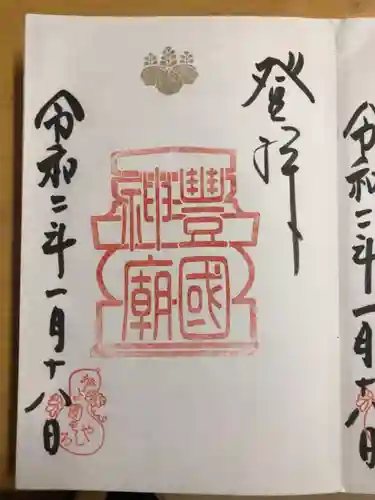 登拝
豐國
神廟
令和二年一月十八日
令和二年一月十八日